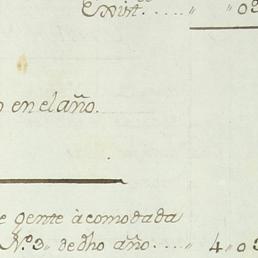 Exist. . . . . " " 02
en el año.
e gente àcomodada
Nº. 3 " de dho año. . . . " 4 " 03